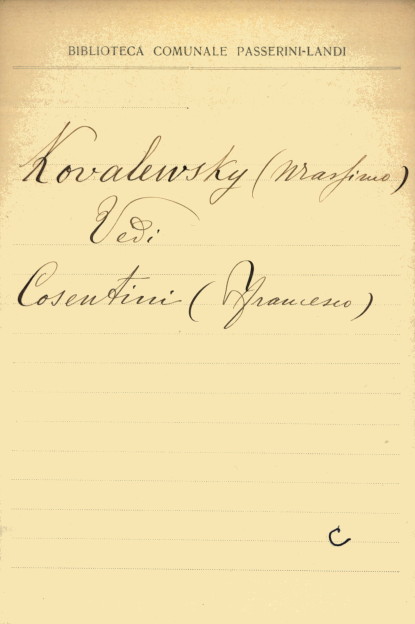 BIBLIOTECA COMUNALE PASSERINI-LANDI
Kovalewsky (Massimo)
Vedi
Cosentini (Francesco)
C